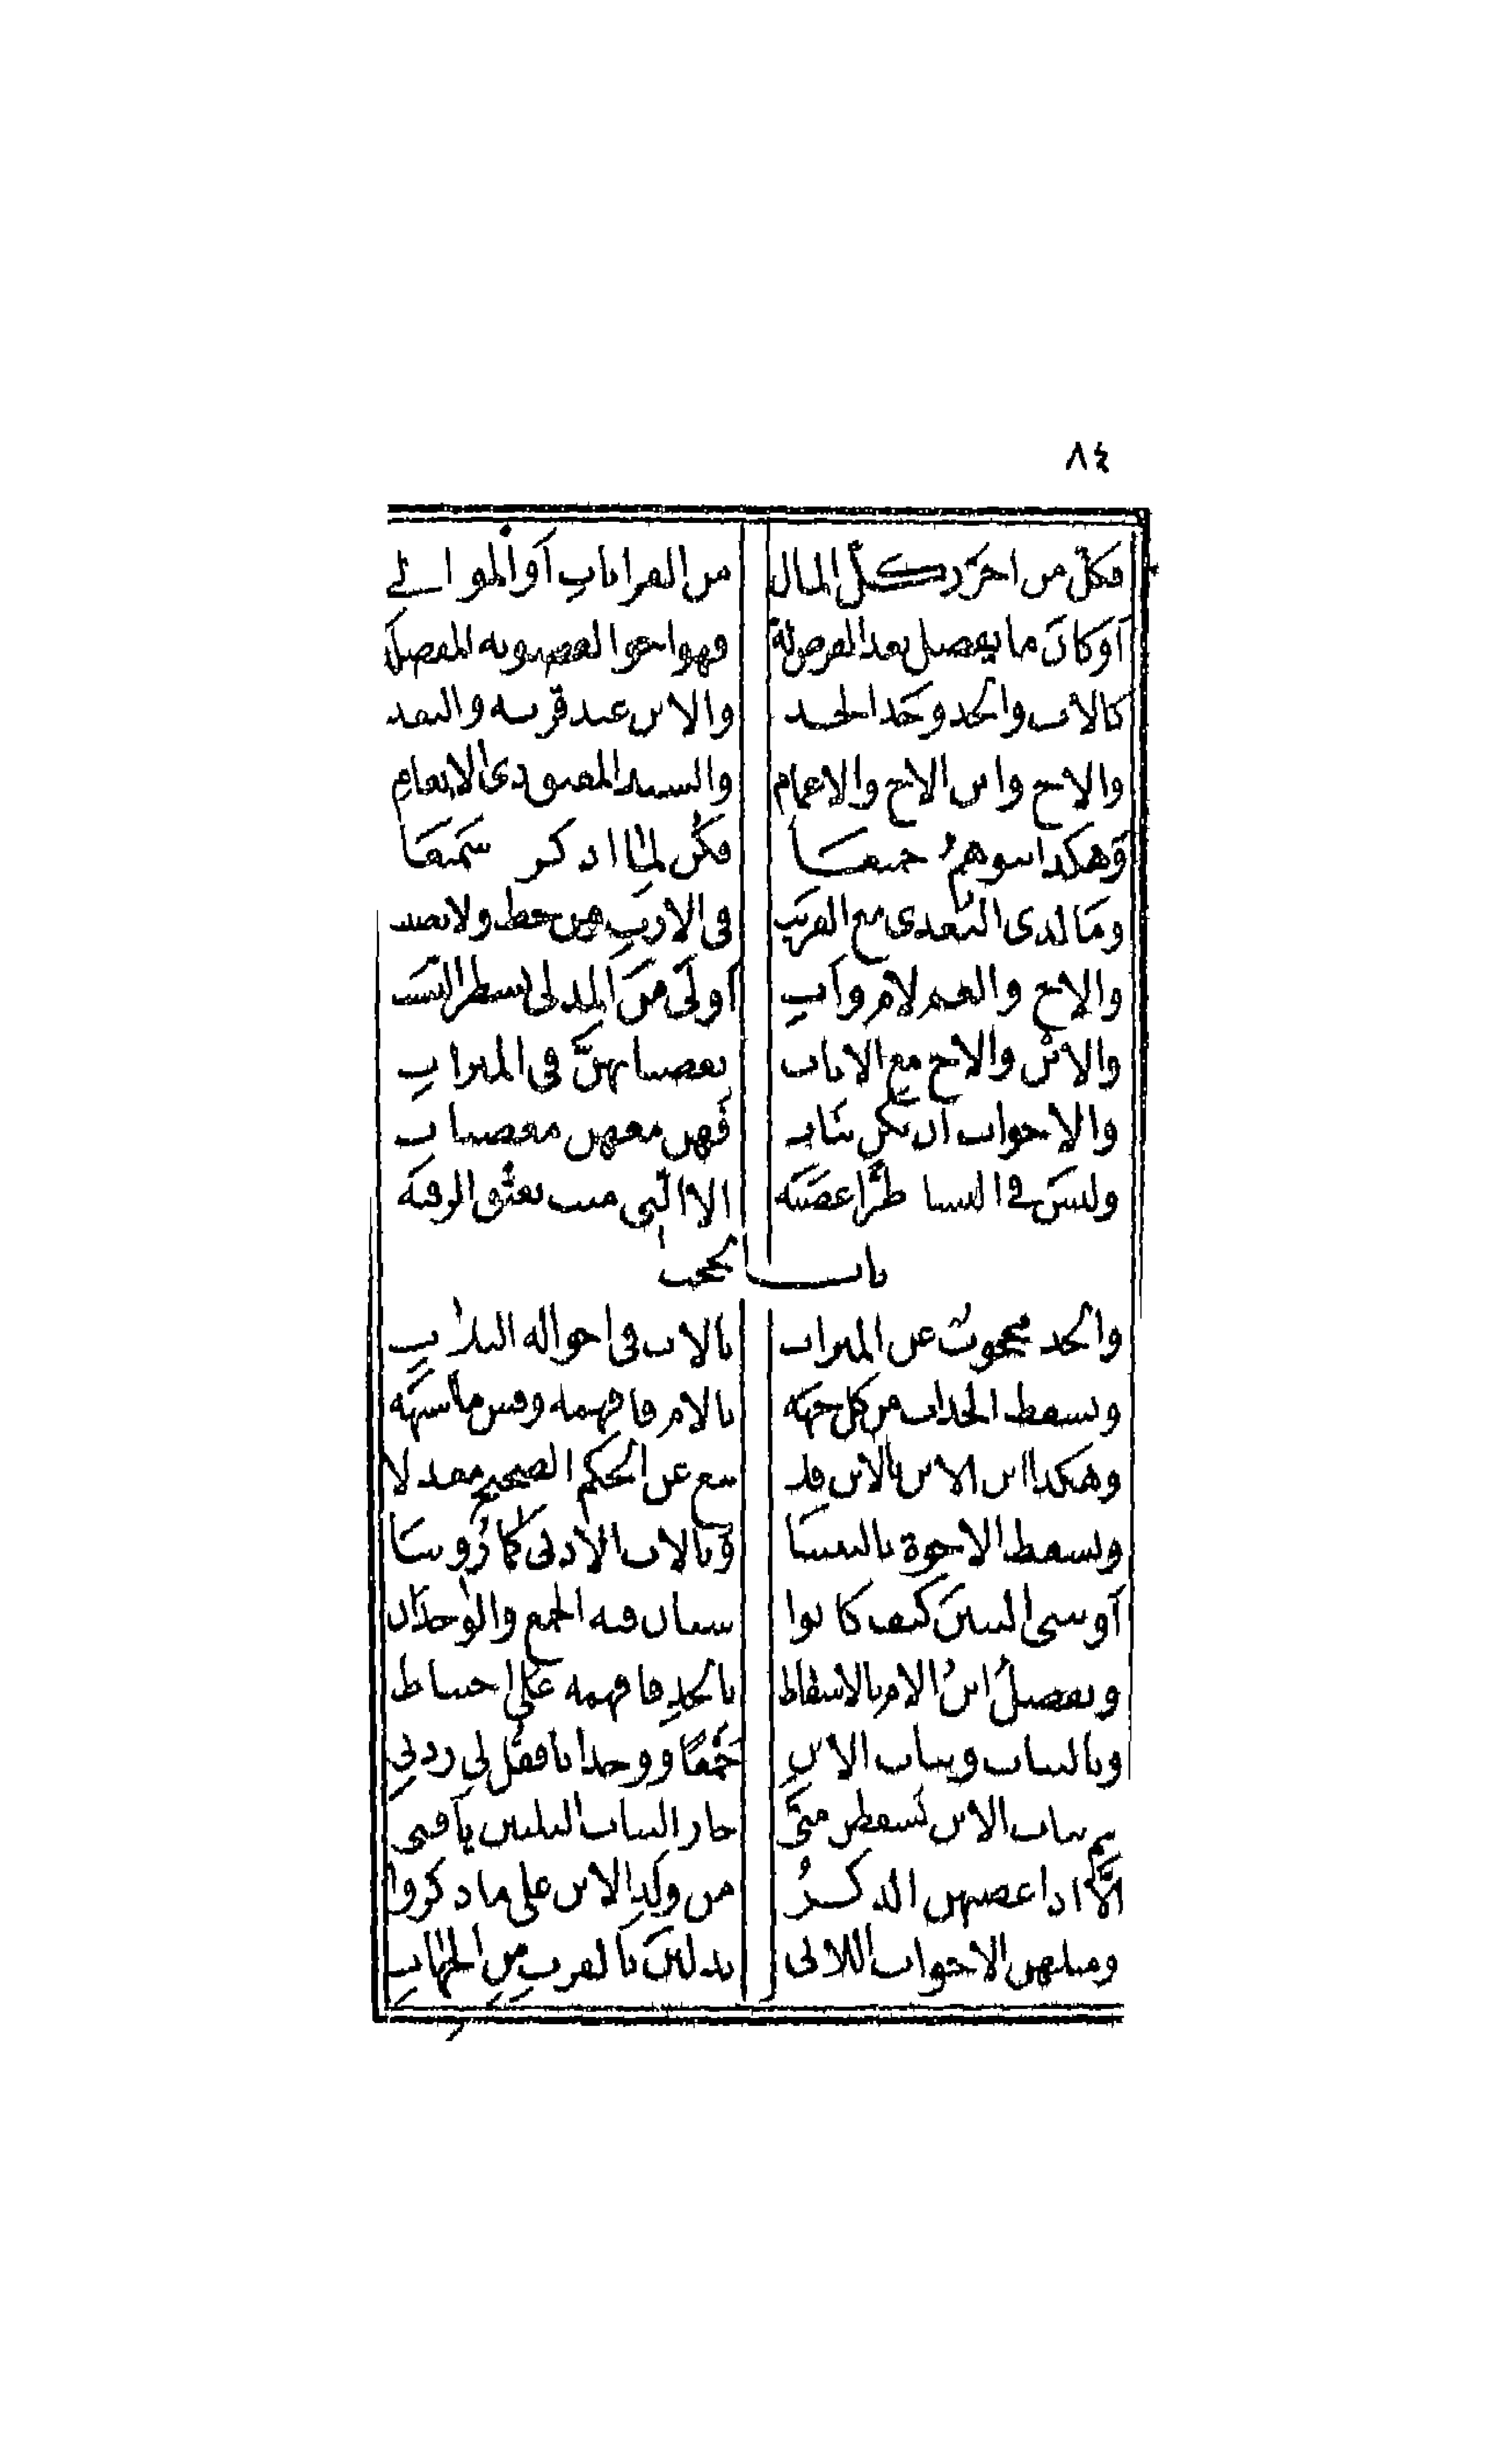 ٨٤
فكل من احرز كل المال من القرابات أو الموالي
أو كان ما يفضل بعد الفرض له فهو اخو العصوبة المفضله
كالاب والجد وجد الجد والابن عند قربه والبعد
والاخ وابن الاخ والاعمام والسيد المعتق ذي الانعام
وهكذا بنوهم جميعا فكن لما اذكر سميعا
وما لذي البعدى مع القريب في الارث من حظ ولا نصيب
والاخ والعم لام وأب أولى من المدلي بشطر النسب
والابن والاخ مع الاناث يعصبانهن في الميراث
والاخوات ان تكن بنات فهن معهن معصبات
وليس في النسا طرا عصبه الا التي منت بعتق الرقبه
باب الحجب
والجد محجوب عن الميراث بالاب في احواله الثلاث
وتسقط الجدات من كل جهه بالام فافهمه وقس ما اشبهه
وهكذا ابن الابن بالابن فلا تبغ عن الحكم الصحيح معدلا
وتسقط الاخوة بالبنينا وبالاب الادنى كما روينا
أو ببني البنين كيف كانوا سيان فيه الجمع والوحدان
ويفضل ابن الام بالاسقاط بالجد فافهمه على احتياط
وبالبنات وبنات الابن جمعا ووحدانا فقل لي زدني
ثم بنات الابن تسقطن متى حاز البنات الثلثين يا فتى
الا اذا عصبهن الذكر من ولد الابن على ما ذكروا
ومثلهن الاخوات اللاتي يدلين بالقرب من الجهات